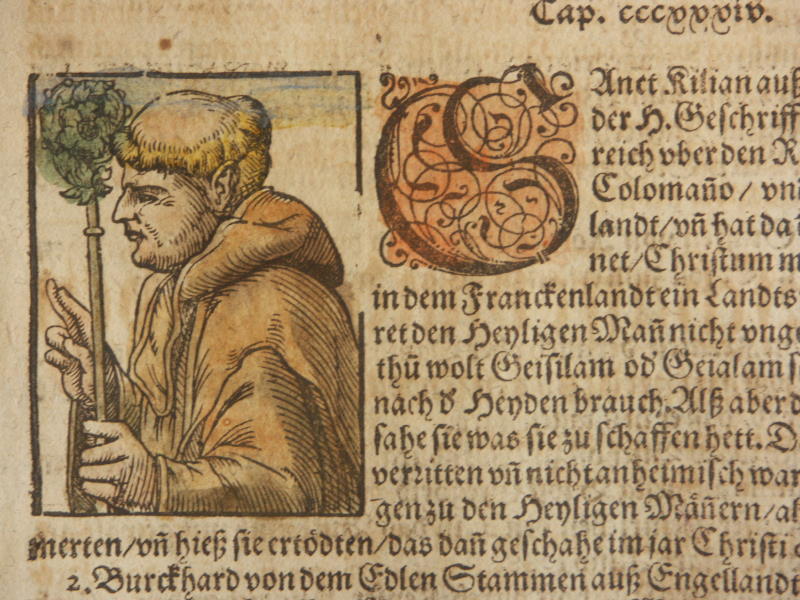 Cap. cccxxxiv.
SAnct Kilian auß
der H. Geschriff
reich vber den R
Colomaño / vn
landt/vñ hat da
net/Christum m
in dem Franckenlandt ein Landts
ret den Heyligen Mañ nicht vnge
thũ wolt Geisilam od' Geialam s
nach d' Heyden brauch. Alß aber d
sahe sie was sie zu schaffen hett. D
verritten vñ nicht anheimisch war
gen zu den Heyligen Mäñern/al
merten/vñ hieß sie ertödten/das dañ geschahe im jar Christi
2. Burckhard von dem Edlen Stammen auß Engellandt